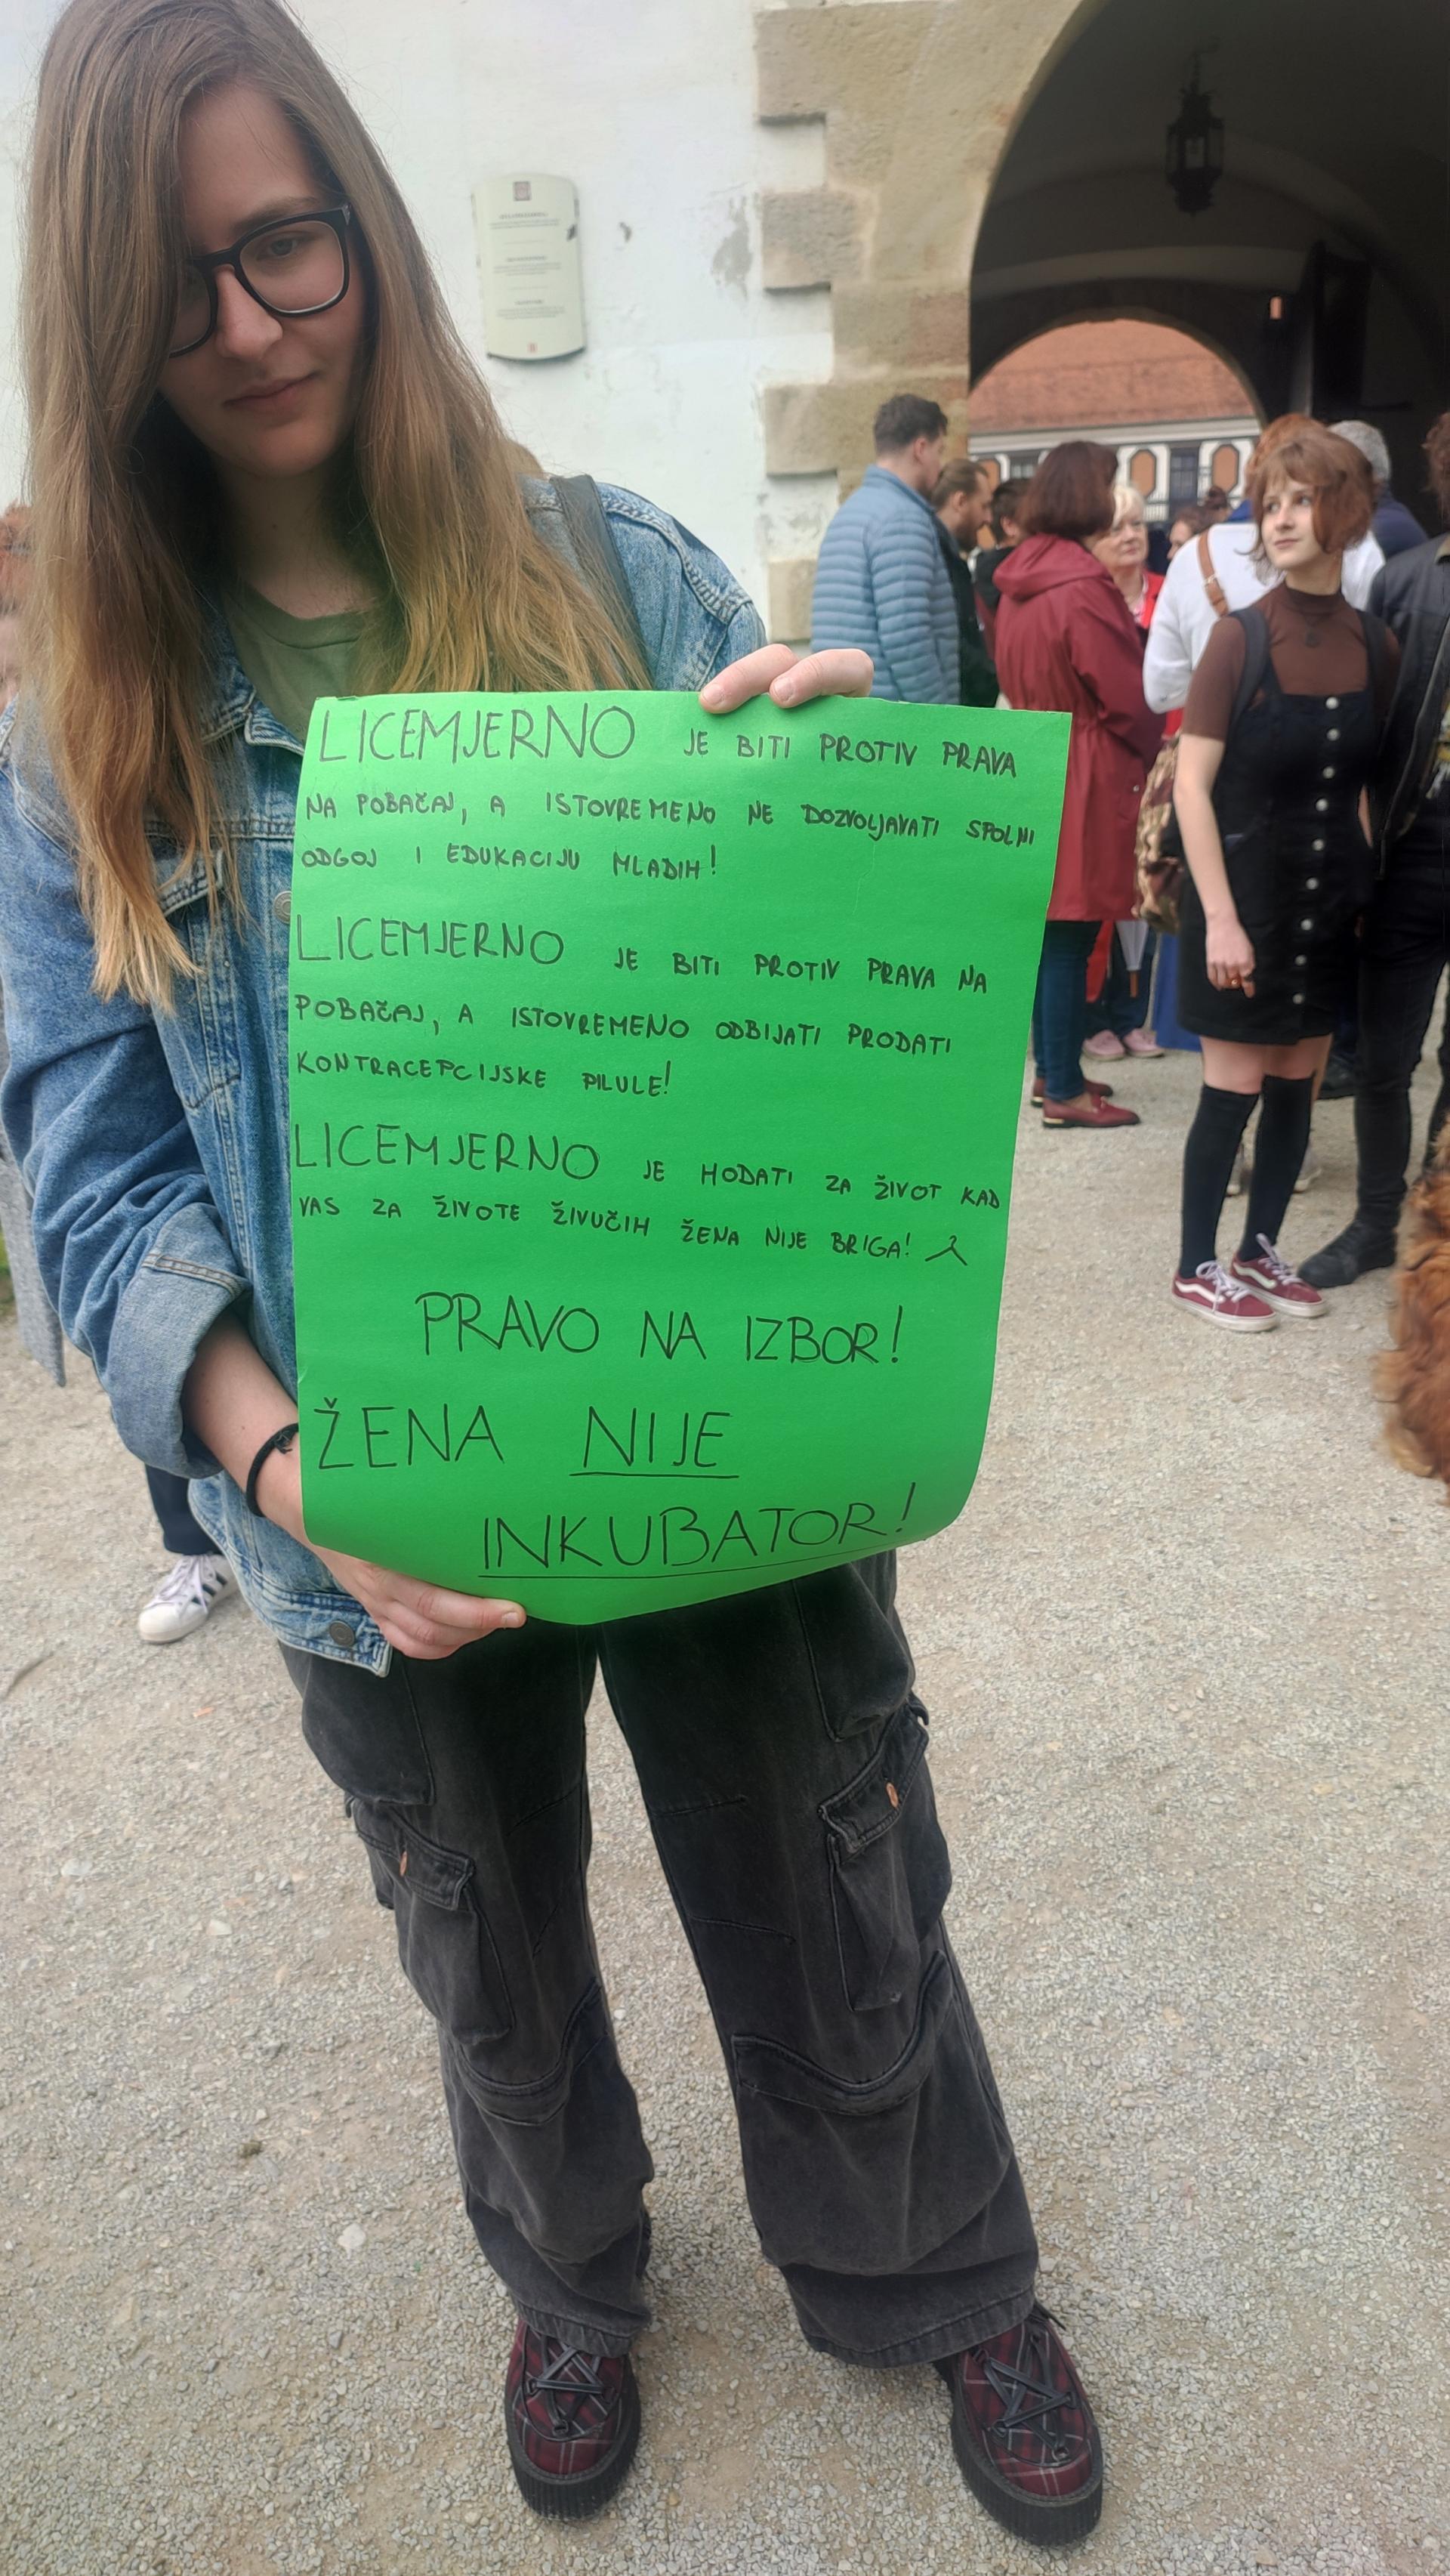 LICEMJERNO JE BITI PROTIV PRAVA
NA POBAČAJ, A ISTOVREMENO NE DOZVOLJAVATI SPOLNI
ODGOJ I EDUKACIJU MLADIH!
LICEMJERNO JE BITI PROTIV PRAVA NA
POBAČAJ, A ISTOVREMENO ODBIJATI PRODATI
KONTRACEPCIJSKE PILULE!
LICEMJERNO JE HODATI ZA ŽIVOT KAD
VAS ZA ŽIVOTE ŽIVUČIH ŽENA NIJE BRIGA!
PRAVO NA IZBOR!
ŽENA NIJE
INKUBATOR!